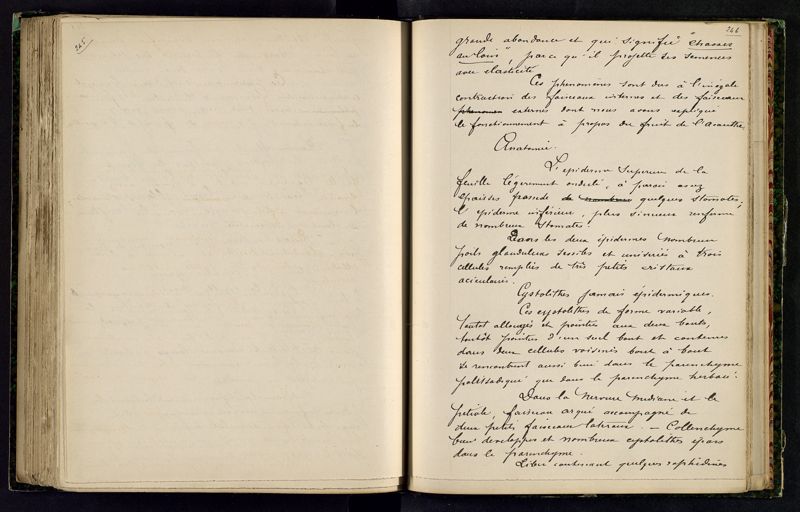 245
246
grande abondance et qui signifie "chasser
au loin", parce qu'il projette ses semences
avec élasticité.
Ces phénomènes sont dus à l'inégale
contraction des faisceaux internes et des faisceaux
externes dont nous avons expliqué
le fonctionnement à propos du fruit de l'Acanthe.
Anatomie.
L'épiderme supérieur de la
feuille légèrement ondulé, à parois assez
épaisses possède de nombreux quelques stomates;
l'épiderme inférieur, plus sinueux renferme
de nombreux stomates.
Dans les deux épidermes nombreux
poils glanduleux sessiles et unisériés à trois
cellules remplies de très petits cristaux
aciculaires.
Cystolithes jamais épidermiques.
Ces cystolithes de forme variable,
tantôt allongés et pointus aux deux bouts,
tantôt pointus d'un seul bout et contenus
dans deux cellules voisines bout à bout
se rencontrent aussi bien dans le parenchyme
palissadique que dans le parenchyme herbacé.
Dans la nervure médiane et le
pétiole, faisceau arqué accompagné de
deux petits faisceaux latéraux. — Collenchyme
bien développé et nombreux cystolithes épars
dans le parenchyme.
Liber contenant quelques raphidines